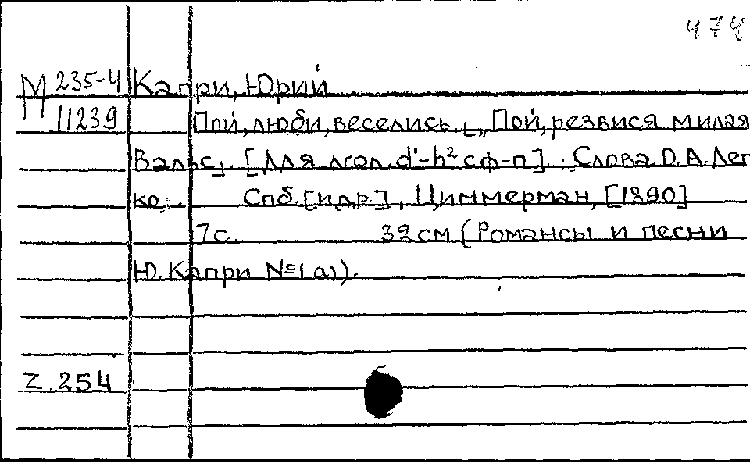 478
М 235-4 Капри, Юрий
11239 Пой, люби, веселись. [„Пой, резвися милая
Вальс]. [Для гол. d'-h² с ф-п]. Слова О.А. Леп
ко. Спб. [и др.], Циммерман, [1890]
7 с. 32 см (Романсы и песни
Ю. Капри № 1 а)).
Z. 254